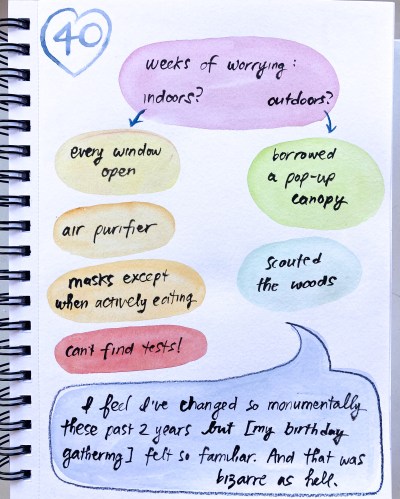 40
weeks of worrying:
indoors? outdoors?
every window
open
air purifier
masks except
when actively eating
can't find tests!
borrowed
a pop-up
canopy
scouted
the woods
I feel I've changed so monumentally
these past 2 years but [my birthday
gathering] felt so familiar. And that was
bizarre as hell.